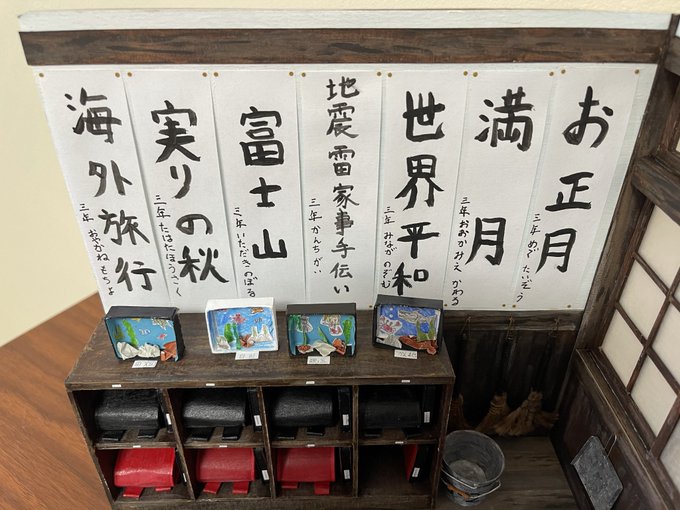 お正月
三年 めで たいぞう
満月
三年 おおかみえ かわる
世界平和
三年 みなが のぞむ
地震雷家事手伝い
三年 かんちがい
富士山
三年 いただき のぼる
実りの秋
三年 たはたほうさく
海外旅行
三年 おやかね もちよ